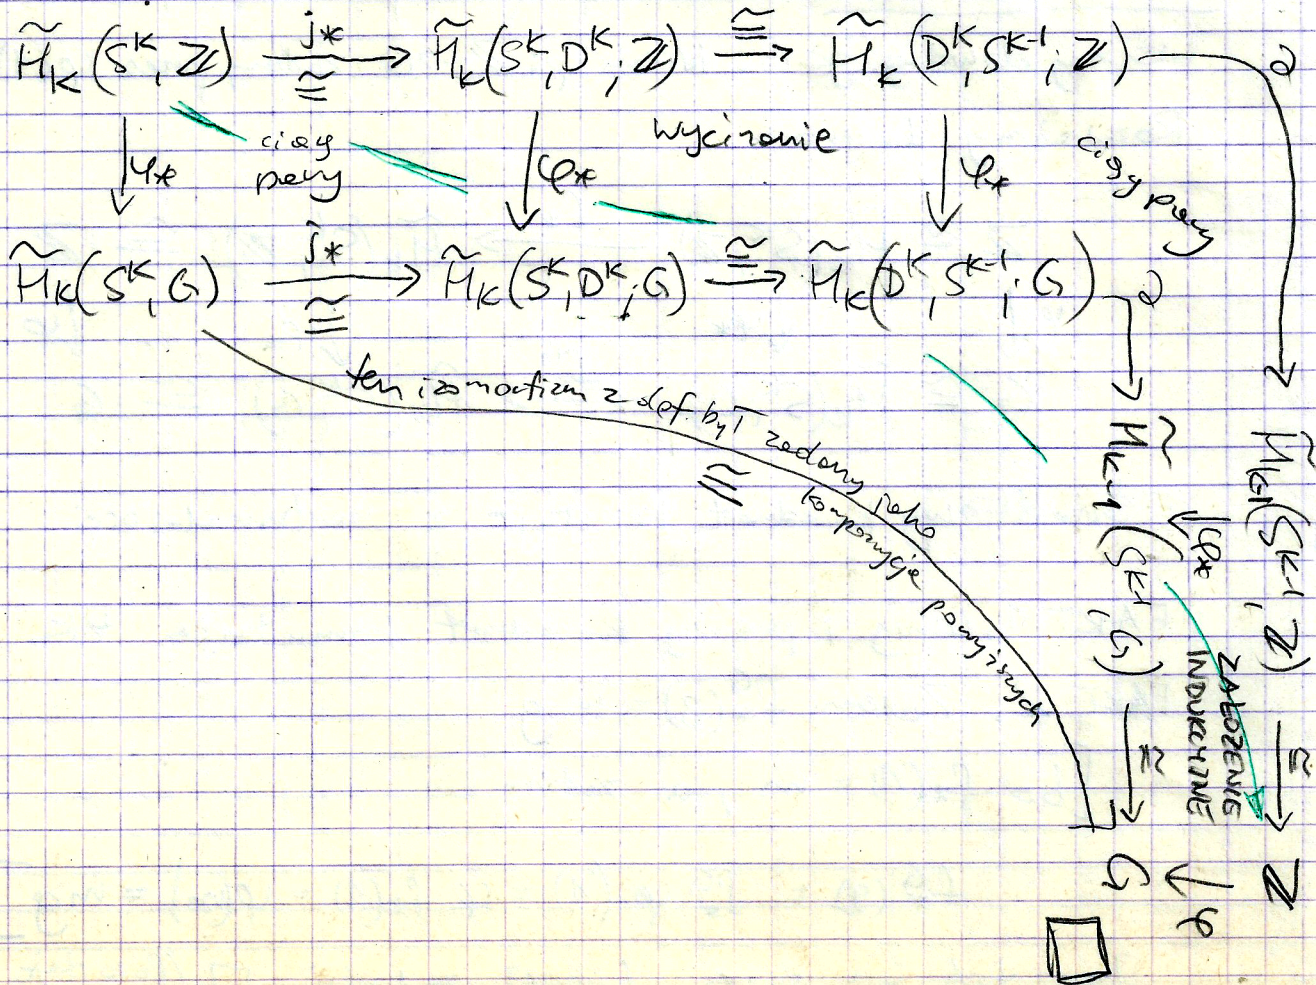 H̃ₖ(Sᵏ, ℤ) j* ≅ H̃ₖ(Sᵏ, Dᵏ; ℤ) ≅ H̃ₖ(Dᵏ, Sᵏ⁻¹; ℤ) ∂
φ* ciąg pary φ* wycinanie φ* ciąg pary
H̃ₖ(Sᵏ, G) j* ≅ H̃ₖ(Sᵏ, Dᵏ; G) ≅ H̃ₖ(Dᵏ, Sᵏ⁻¹; G) ∂
ten izomorfizm z def. był zadany jako
≅ kompozycja powyższych
H̃ₖ₋₁(Sᵏ⁻¹, ℤ) ≅ ℤ
φ* ZAŁOŻENIE
INDUKCYJNE φ
H̃ₖ₋₁(Sᵏ⁻¹, G) ≅ G